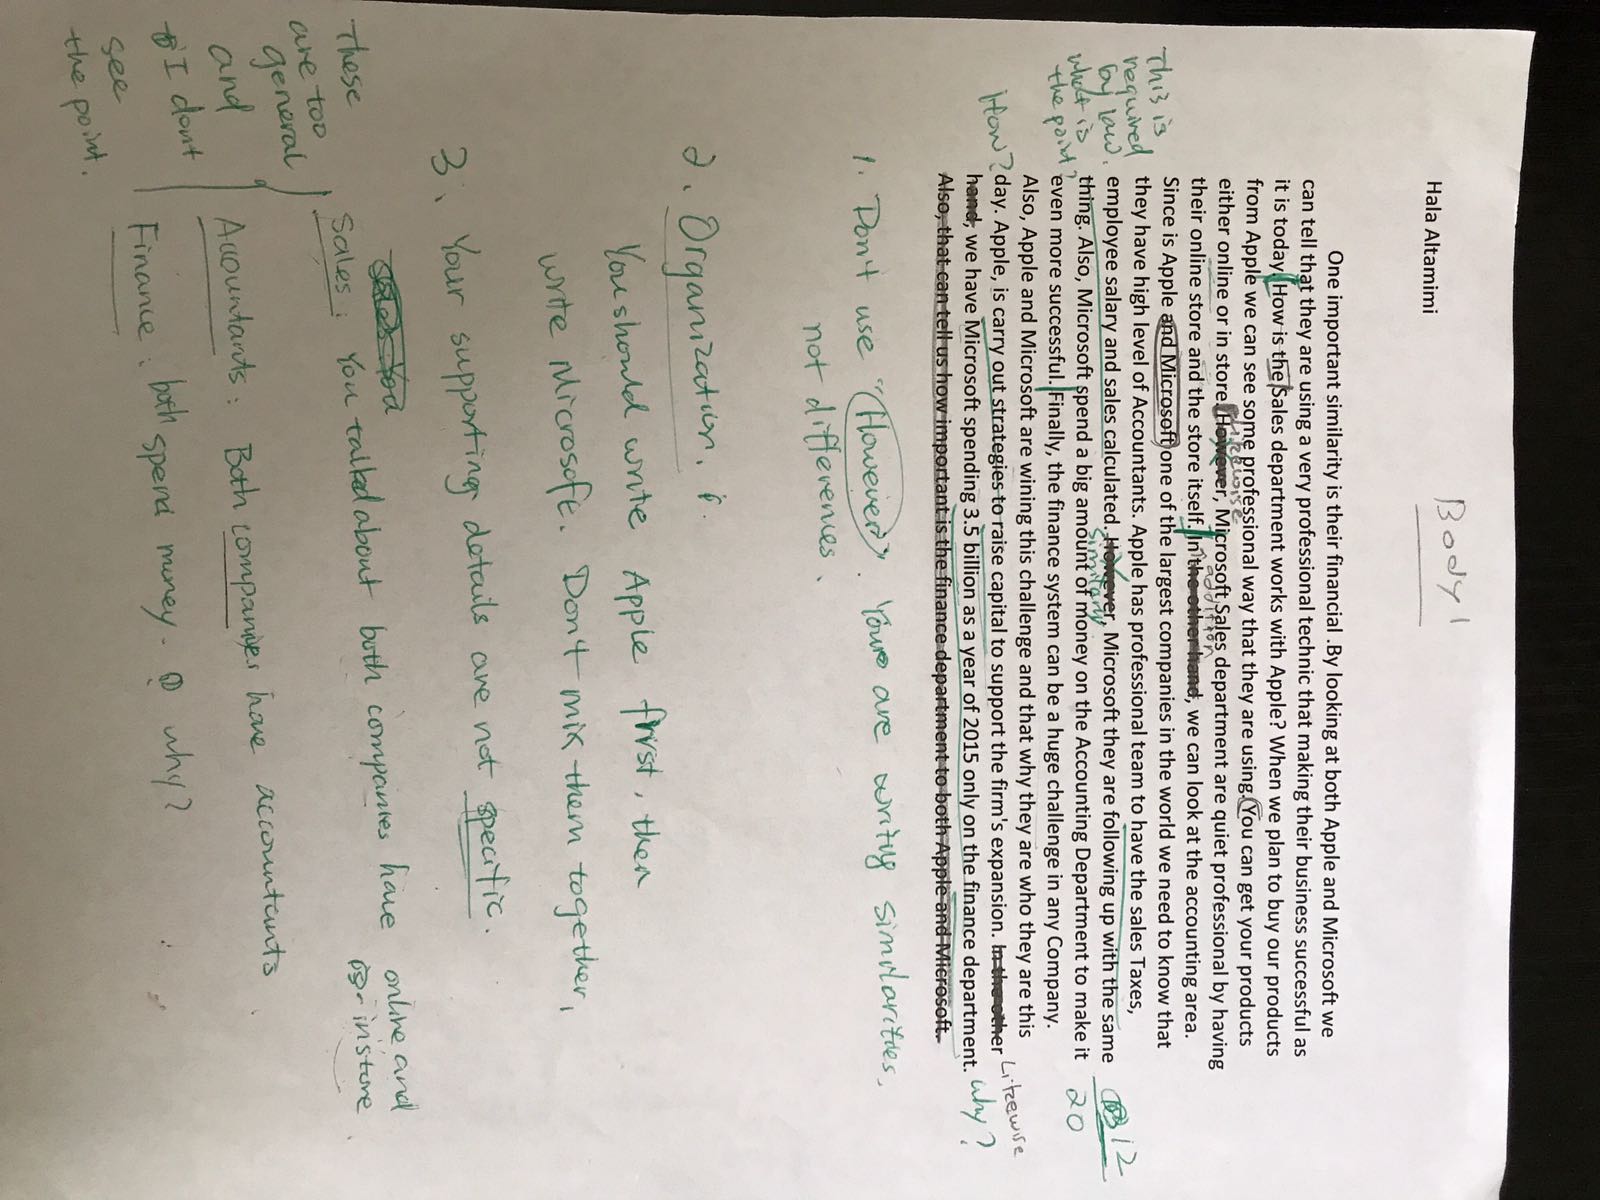 Body 1
Hala Altamimi
One important similarity is their financial .By looking at both Apple and Microsoft we
can tell that they are using a very professional technic that making their business successful as
it is today. How is the Sales department works with Apple? When we plan to buy our products
from Apple we can see some professional way that they are using. You can get your products
either online or in store. However, Microsoft Sales department are quiet professional by having
Likewise
their online store and the store itself. In the other hand, we can look at the accounting area.
addition
Since is Apple and Microsoft one of the largest companies in the world we need to know that
they have high level of Accountants. Apple has professional team to have the sales Taxes,
employee salary and sales calculated. However, Microsoft they are following up with the same
Similarly
thing. Also, Microsoft spend a big amount of money on the Accounting Department to make it
even more successful. Finally, the finance system can be a huge challenge in any Company.
Also, Apple and Microsoft are wining this challenge and that why they are who they are this
day. Apple, is carry out strategies to raise capital to support the firm's expansion. In the other
Likewise
hand, we have Microsoft spending 3.5 billion as a year of 2015 only on the finance department.
why?
Also, that can tell us how important is the finance department to both Apple and Microsoft.
This is
required
by law.
what is
the point?
How?
12
20
1. Don't use "However". Your are writing similarities,
not differences.
2. Organization.
You should write Apple first, then
write Microsoft. Don't mix them together,
3. Your supporting details are not specific.
Sales: You talked about both companies have online and
instore.
Accountants: Both companies have accountants.
Finance: both spend money. why?
These
are too
general
and
I dont
see
the point.